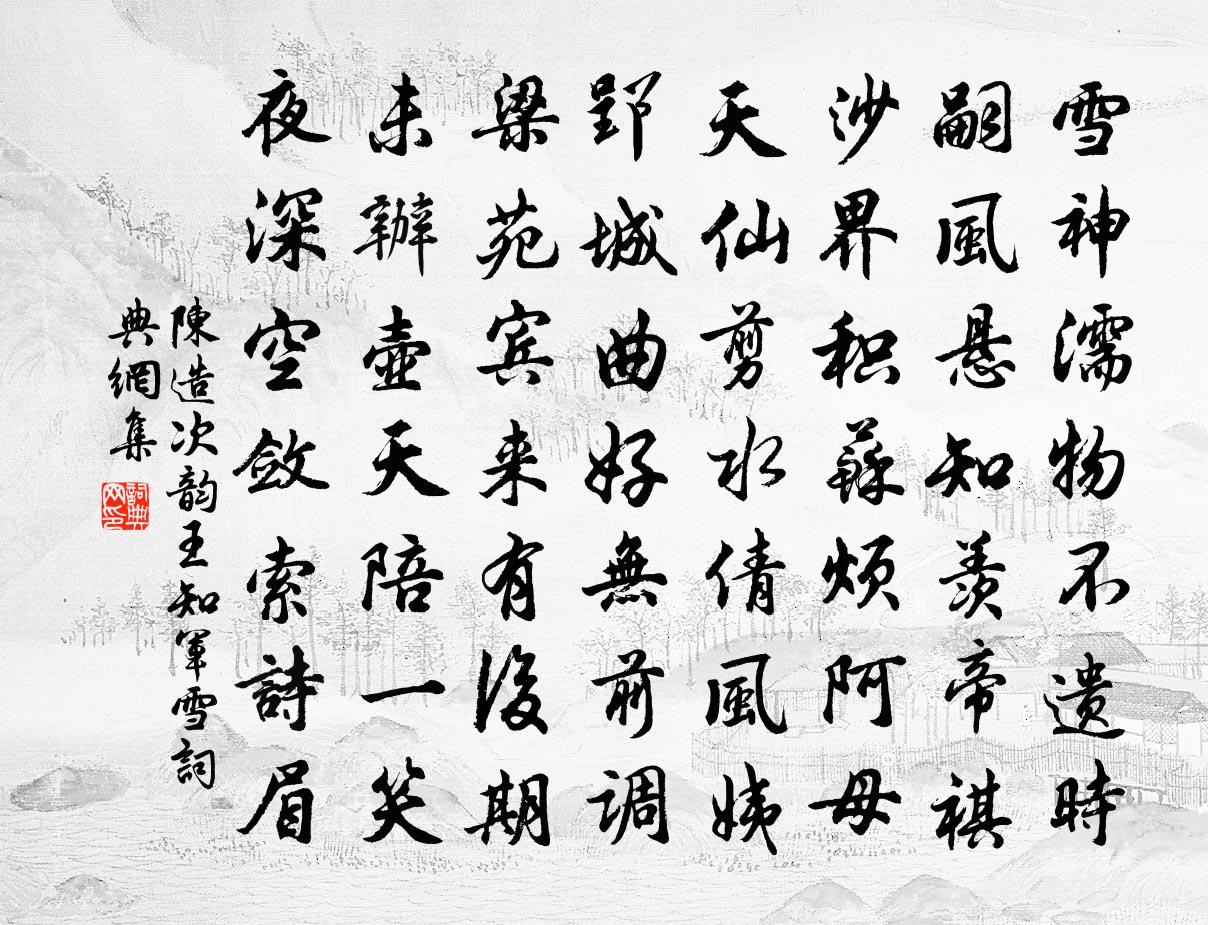 雪神濡物不遗時
嗣風悬知羡帝祺
沙界积蘇烦阿母
天仙剪水倩風姨
郢城曲好無前调
梁苑宾来有後期
未辦壶天陪一笑
夜深空敛索詩眉
陳造次韵王知軍雪詞
典網集
詞典
网印